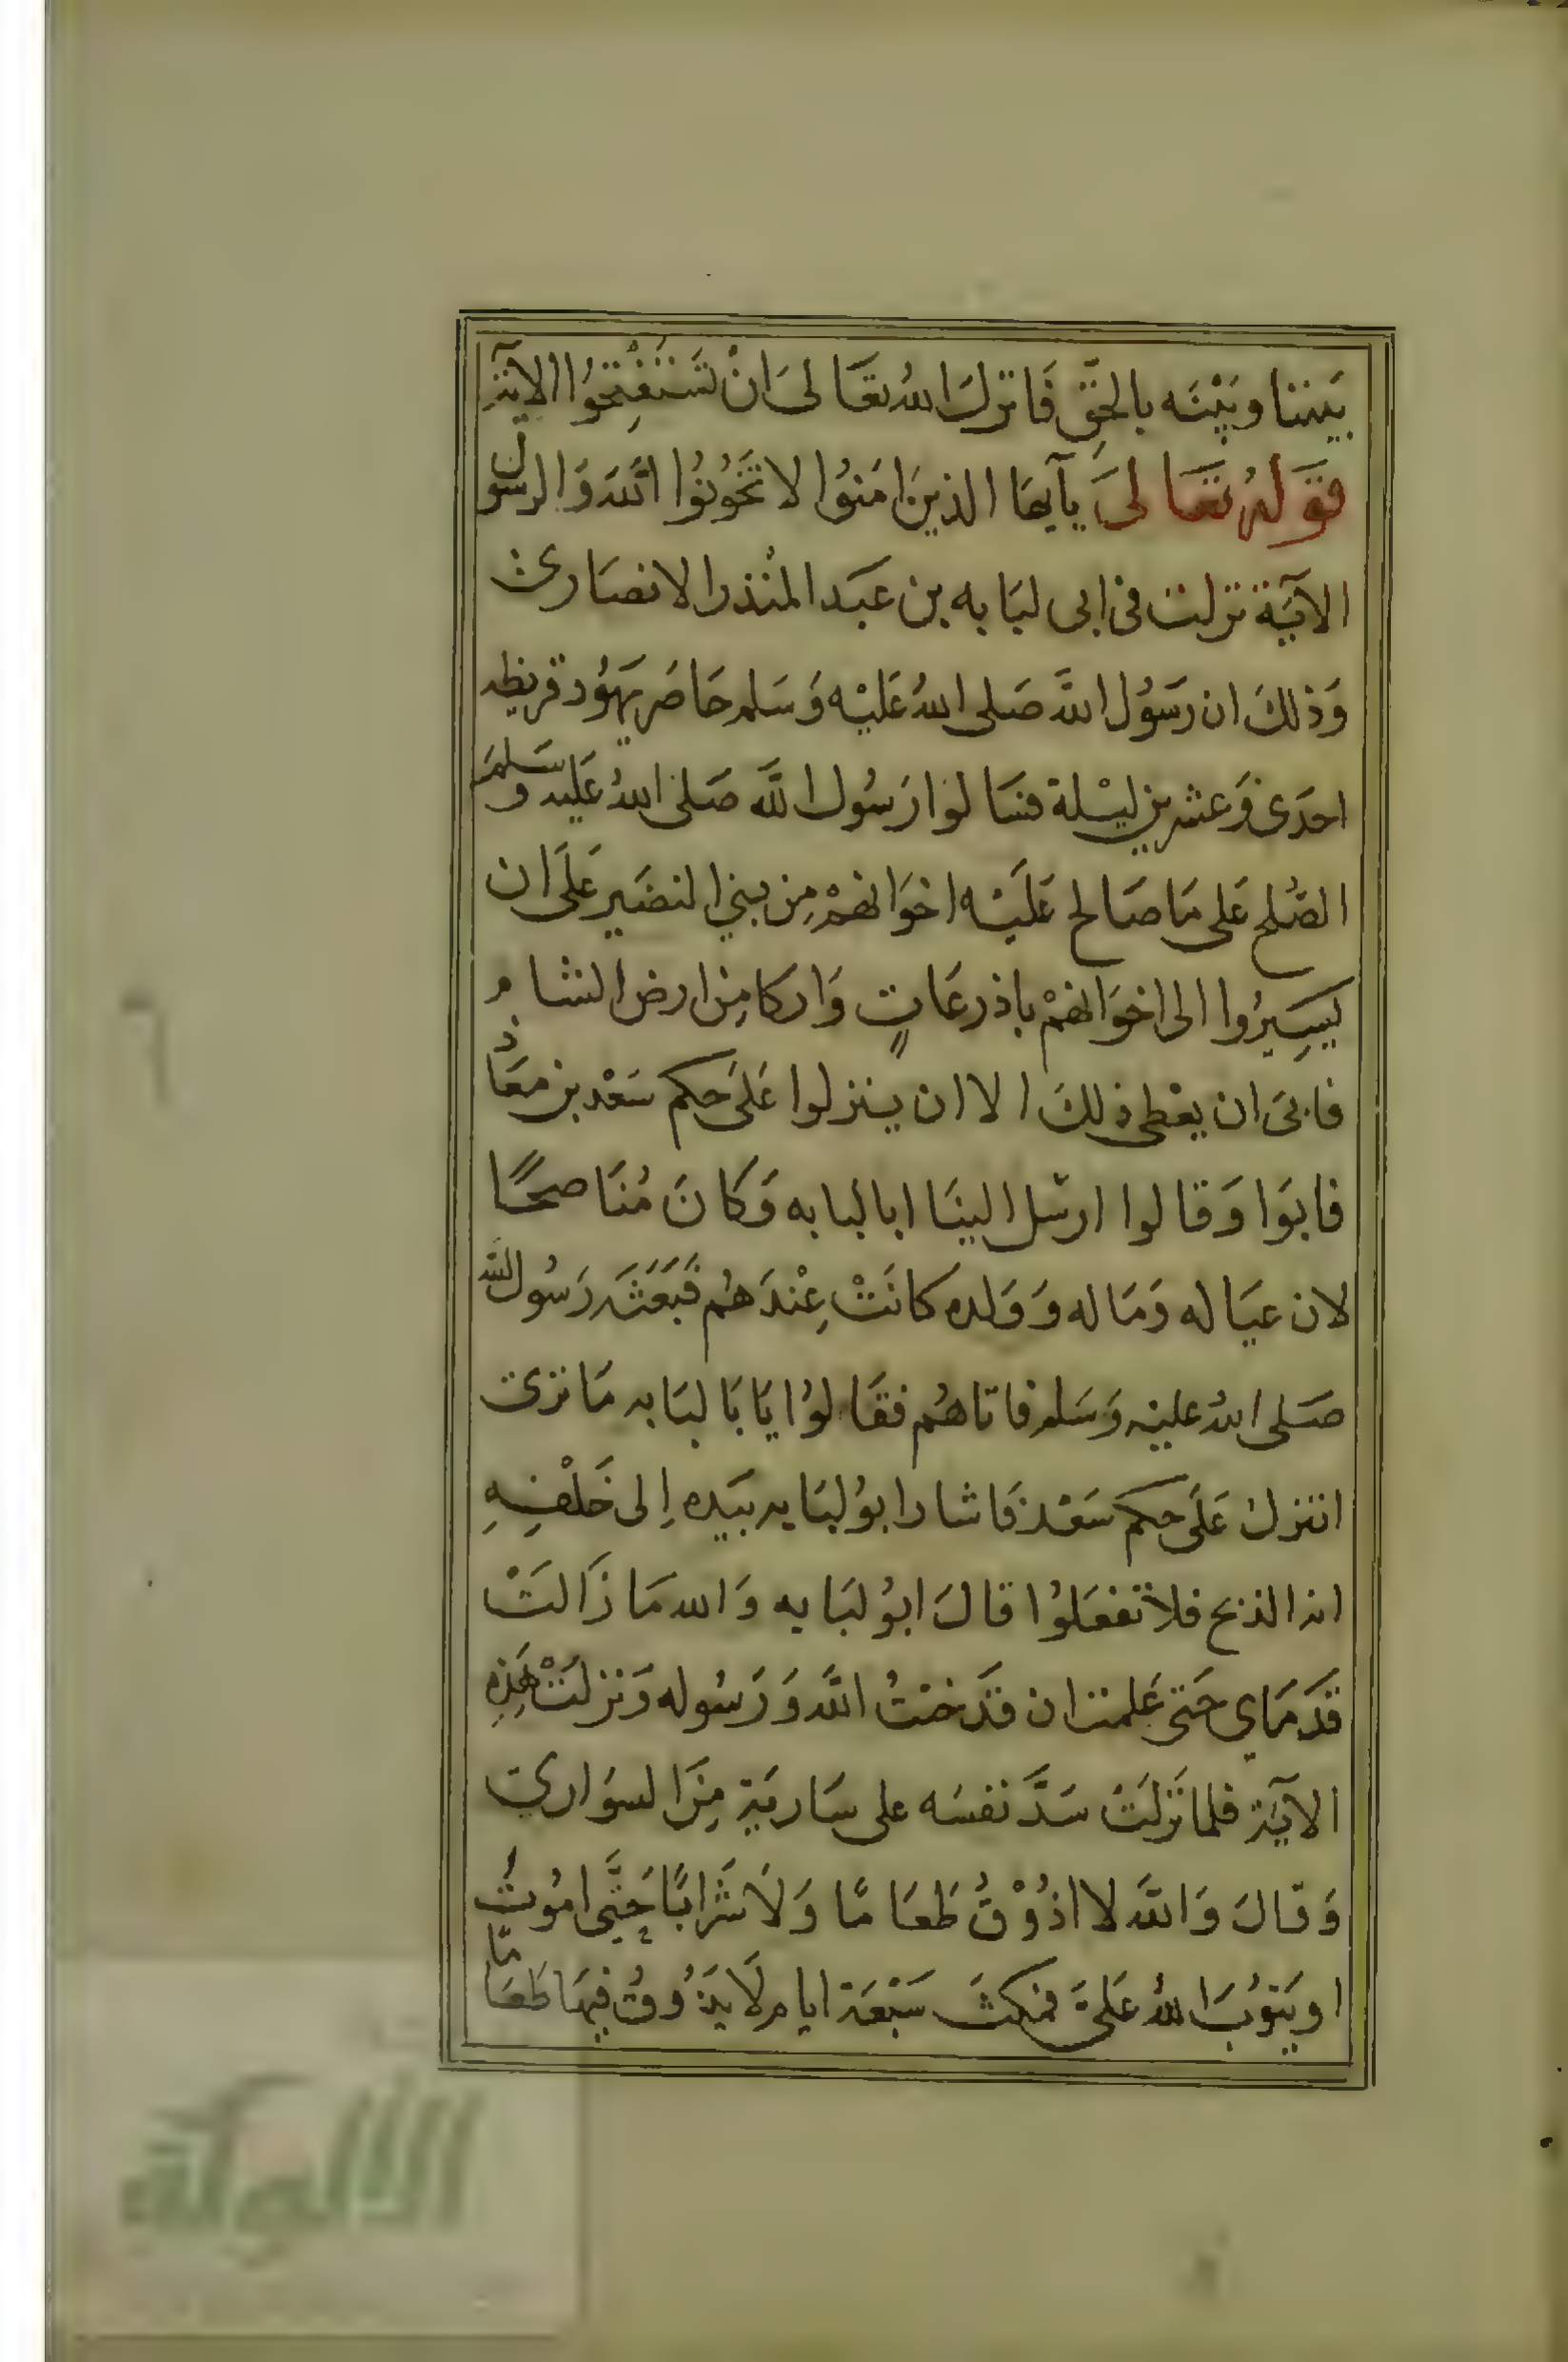 بَيننا وبَيْنَه بالحَقِّ فَانزلَ اللهُ تعَالىَ انْ تَسْتَفْتِحُوا الآيَة
قولهُ تعَالىَ يآيهَا الذينَ امَنوُا لا تَخُونُوا اللهَ وَالرسُول
الآيَة نزلت فى ابى لبَابه بن عَبد المُنْذر الانصَارى
وَذلكَ ان رَسُول اللهَ صَلى اللهُ عَليْه وَسَلم حَاصَر يَهوُد قريظه
احدَى وَعشرين ليْلة فسَالوا رَسُول اللَّه صَلى اللهُ عَليه وسَلمَ
الصُّلح عَلى مَا صَالح عَليْه اخوَانهمْ مِن بني النضير عَلَى ان
يَسِيرُوا الى اخوَانهمْ باذرعَاتٍ وَاركا مِن ارض الشام
فابىَ ان يعْطى ذلكَ الا ان ينزلوا عَلىَ حكم سَعْد بن معَاذ
فابوَا وَقالوا ارسْل الينَا ابا لبابه وَكانَ مُنَاصحًا
لان عيَاله وَمَاله وَوَلده كانَتْ عِنْدَهُم فَبَعَثَه رَسُول الله
صَلى اللهُ عليْه وَسَلم فاتاهُم فقَالوُا يَابَا لبَابه مَا ترىَ
انتزل عَلىَ حكم سَعْد فَاشار ابوُ لبَابه بيَده اِلى خَلْقِهِ
انه الذبح فلا تفعَلوُا قالَ ابوُ لبَابه وَالله مَا زَالتْ
قدَمَاي حَتى عَلمت ان قدَ خنتُ اللهَ وَرَسُوله وَنزلتْ هَذِهِ
الآيَة فلما نَزلَتْ سَدَّ نفسَه على سَاريَة مِنَ السوَاري
وَقالَ وَاللَه لا اذُوْقُ طَعَامًا وَلاَ شَرَابًا حَتَّى امُوتُ
او يَتوُبَ اللهُ عَلىَّ فمكثَ سَبْعَة ايام لَا يَذُوقُ فيهَا طَعَامًا
الألوكة